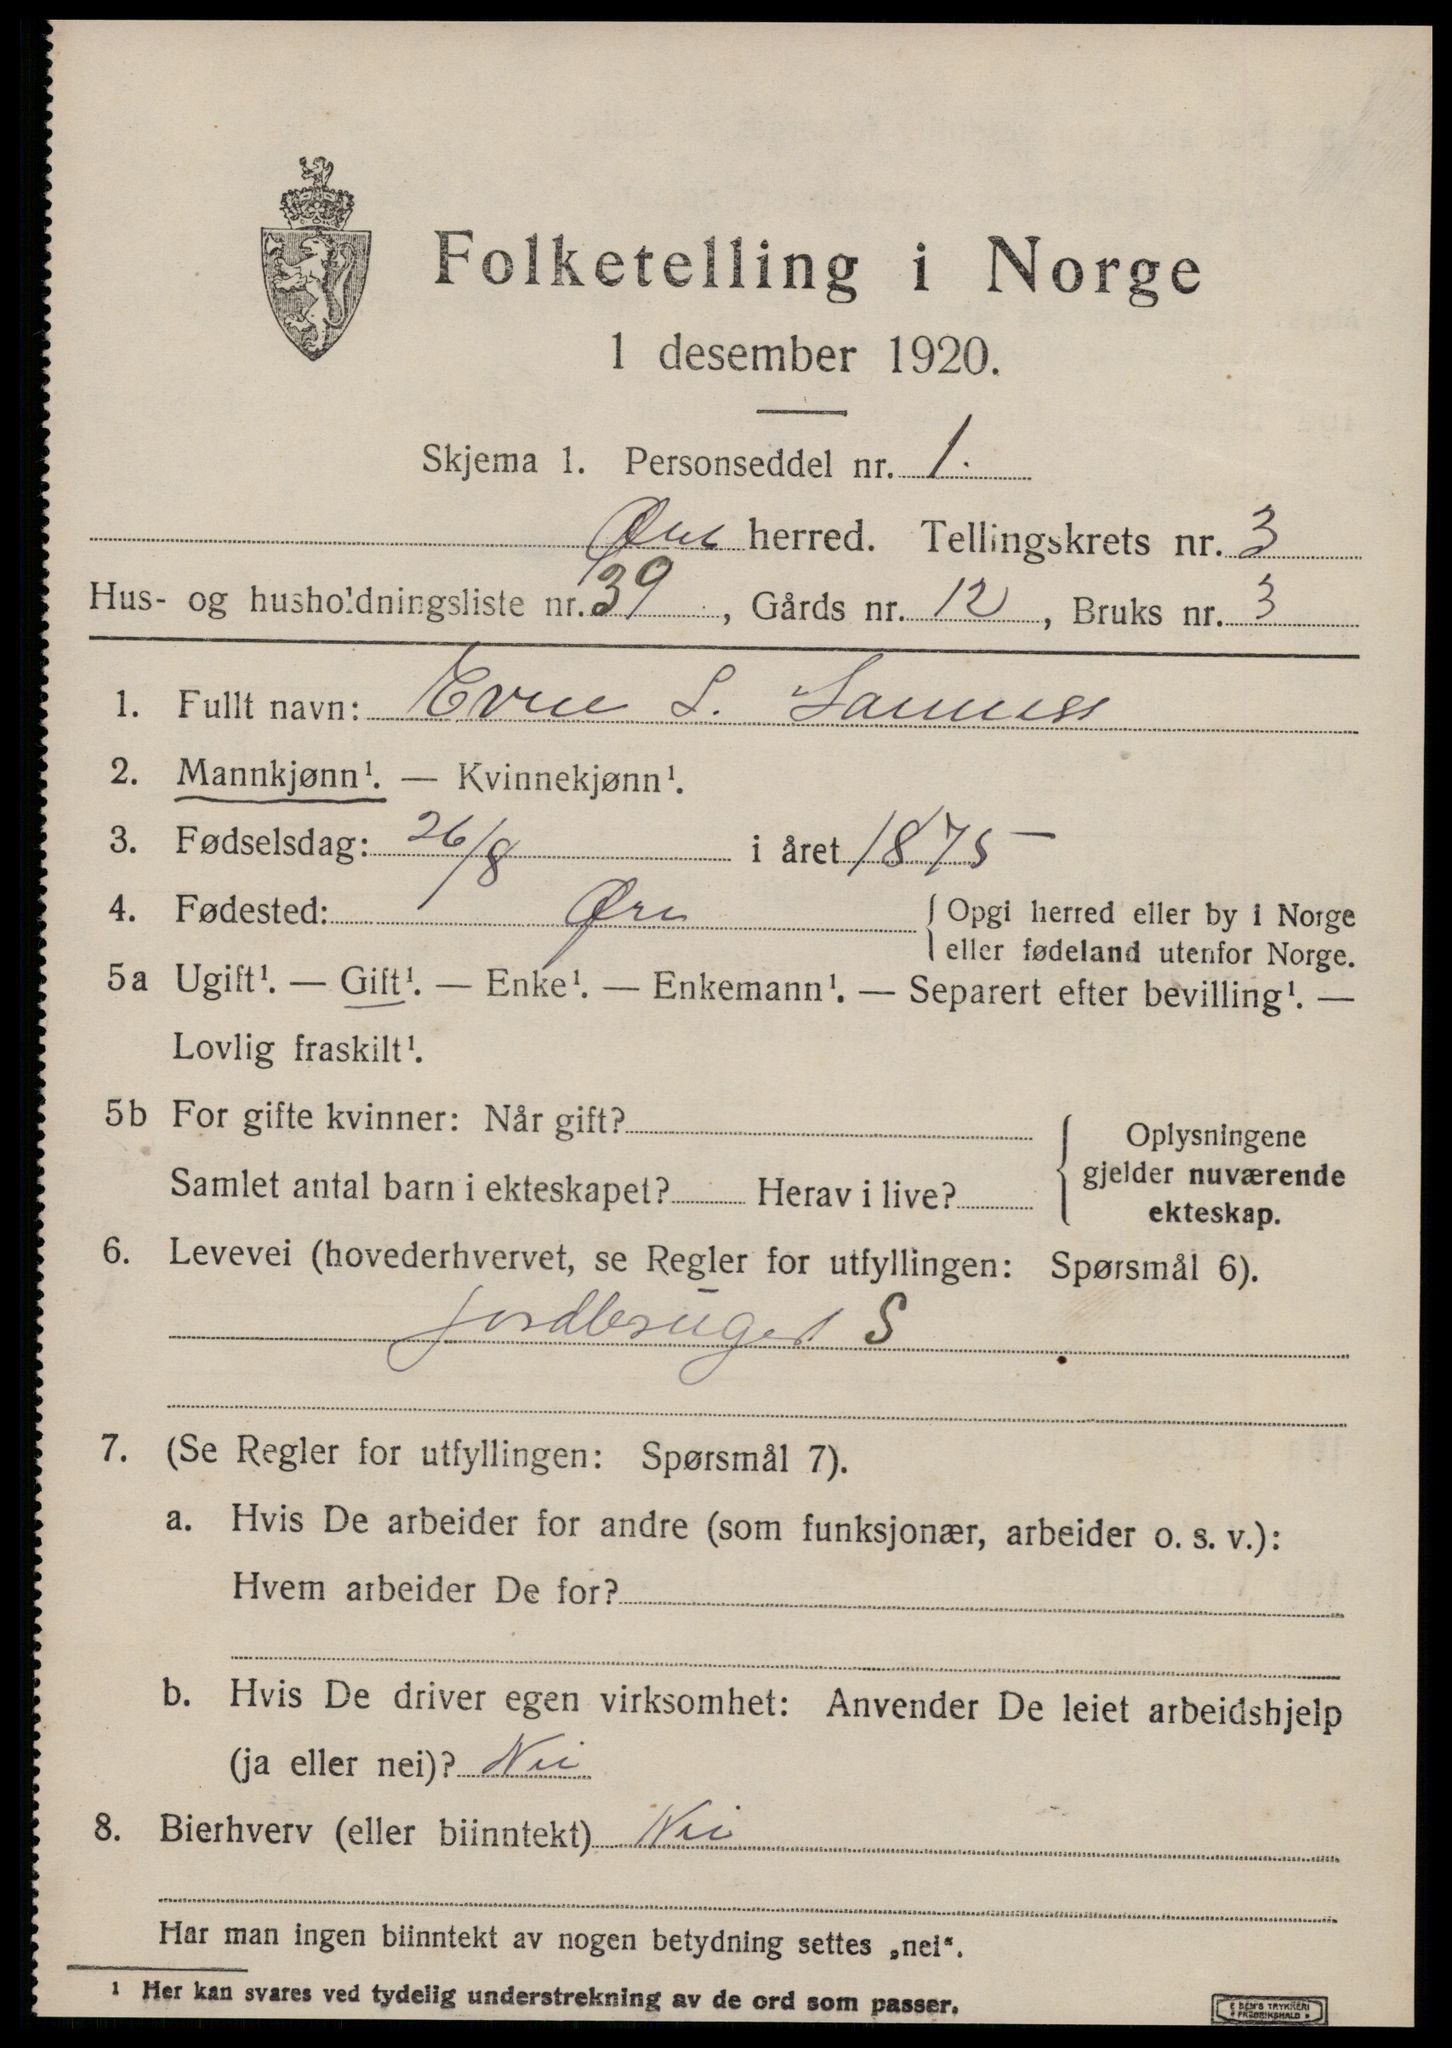 Folketelling i Norge
1 desember 1920.
Skjema 1. Personseddel nr. 1.
Øre herred. Tellingskrets nr. 3
Hus- og husholdningsliste nr. 39, Gårds nr. 12, Bruks nr. 3
1. Fullt navn: L.
2. Mannkjønn¹. — Kvinnekjønn¹.
3. Fødselsdag: 26/8 i året 1875
4. Fødested: Øre {Opgi herred eller by i Norge
eller fødeland utenfor Norge.
5a Ugift¹. — Gift¹. — Enke¹. — Enkemann¹. — Separert efter bevilling¹. —
Lovlig fraskilt¹.
5b For gifte kvinner: Når gift?
Samlet antal barn i ekteskapet? Herav i live?
{ Oplysningene
gjelder nuværende
ekteskap.
6. Levevei (hovederhvervet, se Regler for utfyllingen: Spørsmål 6).
Jordbruger S
7. (Se Regler for utfyllingen: Spørsmål 7).
a. Hvis De arbeider for andre (som funksjonær, arbeider o. s. v.):
Hvem arbeider De for?
b. Hvis De driver egen virksomhet: Anvender De leiet arbeidshjelp
(ja eller nei)? Nei
8. Bierhverv (eller biinntekt) Nei
Har man ingen biinntekt av nogen betydning settes „nei“.
¹ Her kan svares ved tydelig understrekning av de ord som passer.
E SEM'S TRYKKERI
FREDRIKSHALD